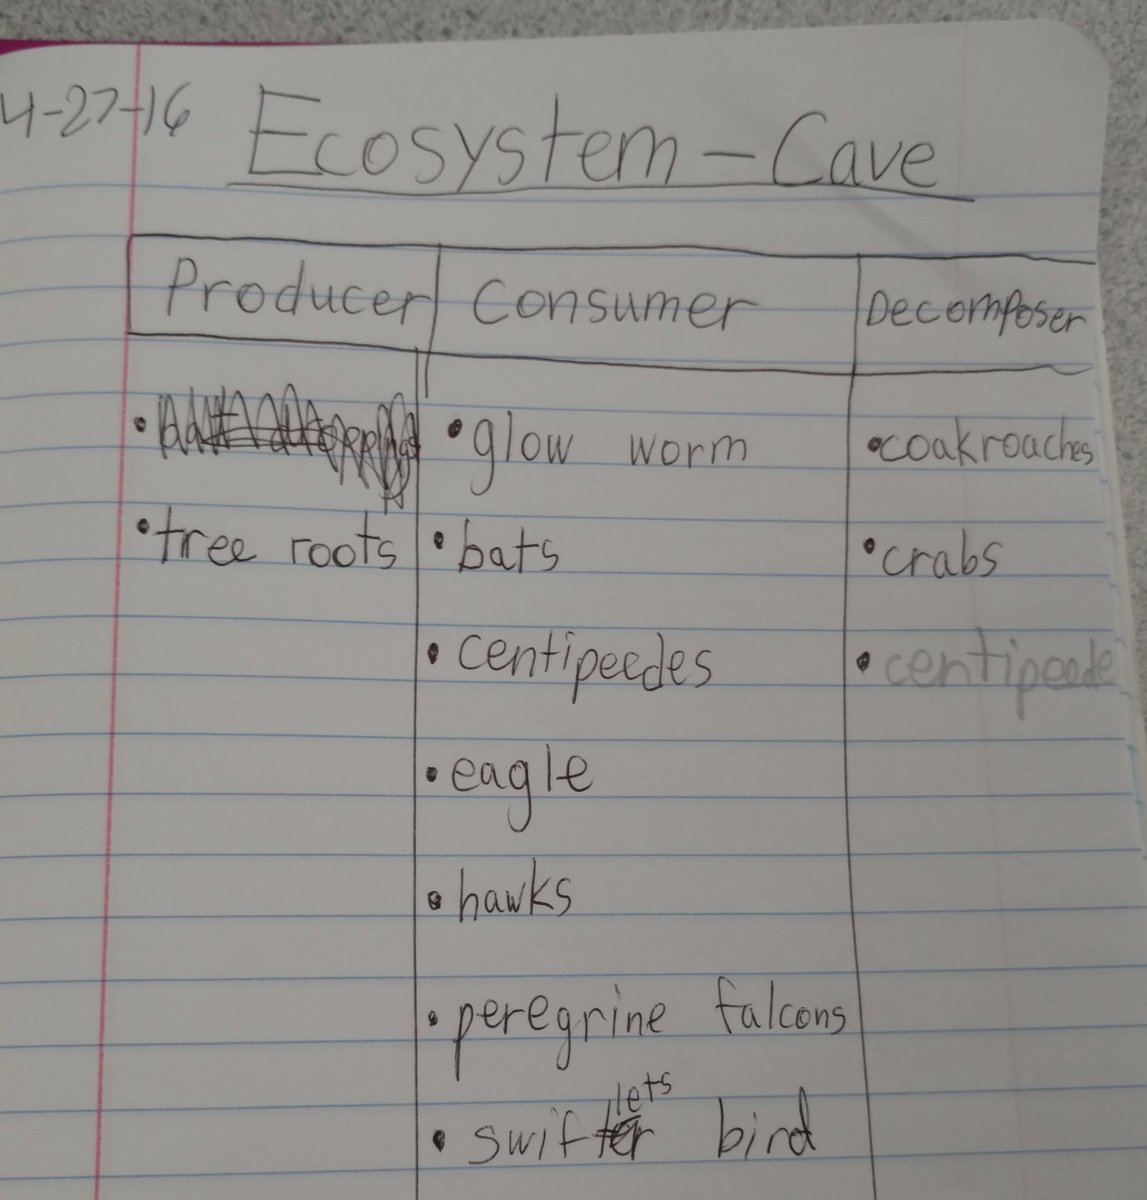 4-27-16 Ecosystem - Cave
Producer Consumer Decomposer
• glow worm • coakroaches
• tree roots • bats • crabs
• centipeedes • centipeede
• eagle
• hawks
• peregrine falcons
• swiftlets bird